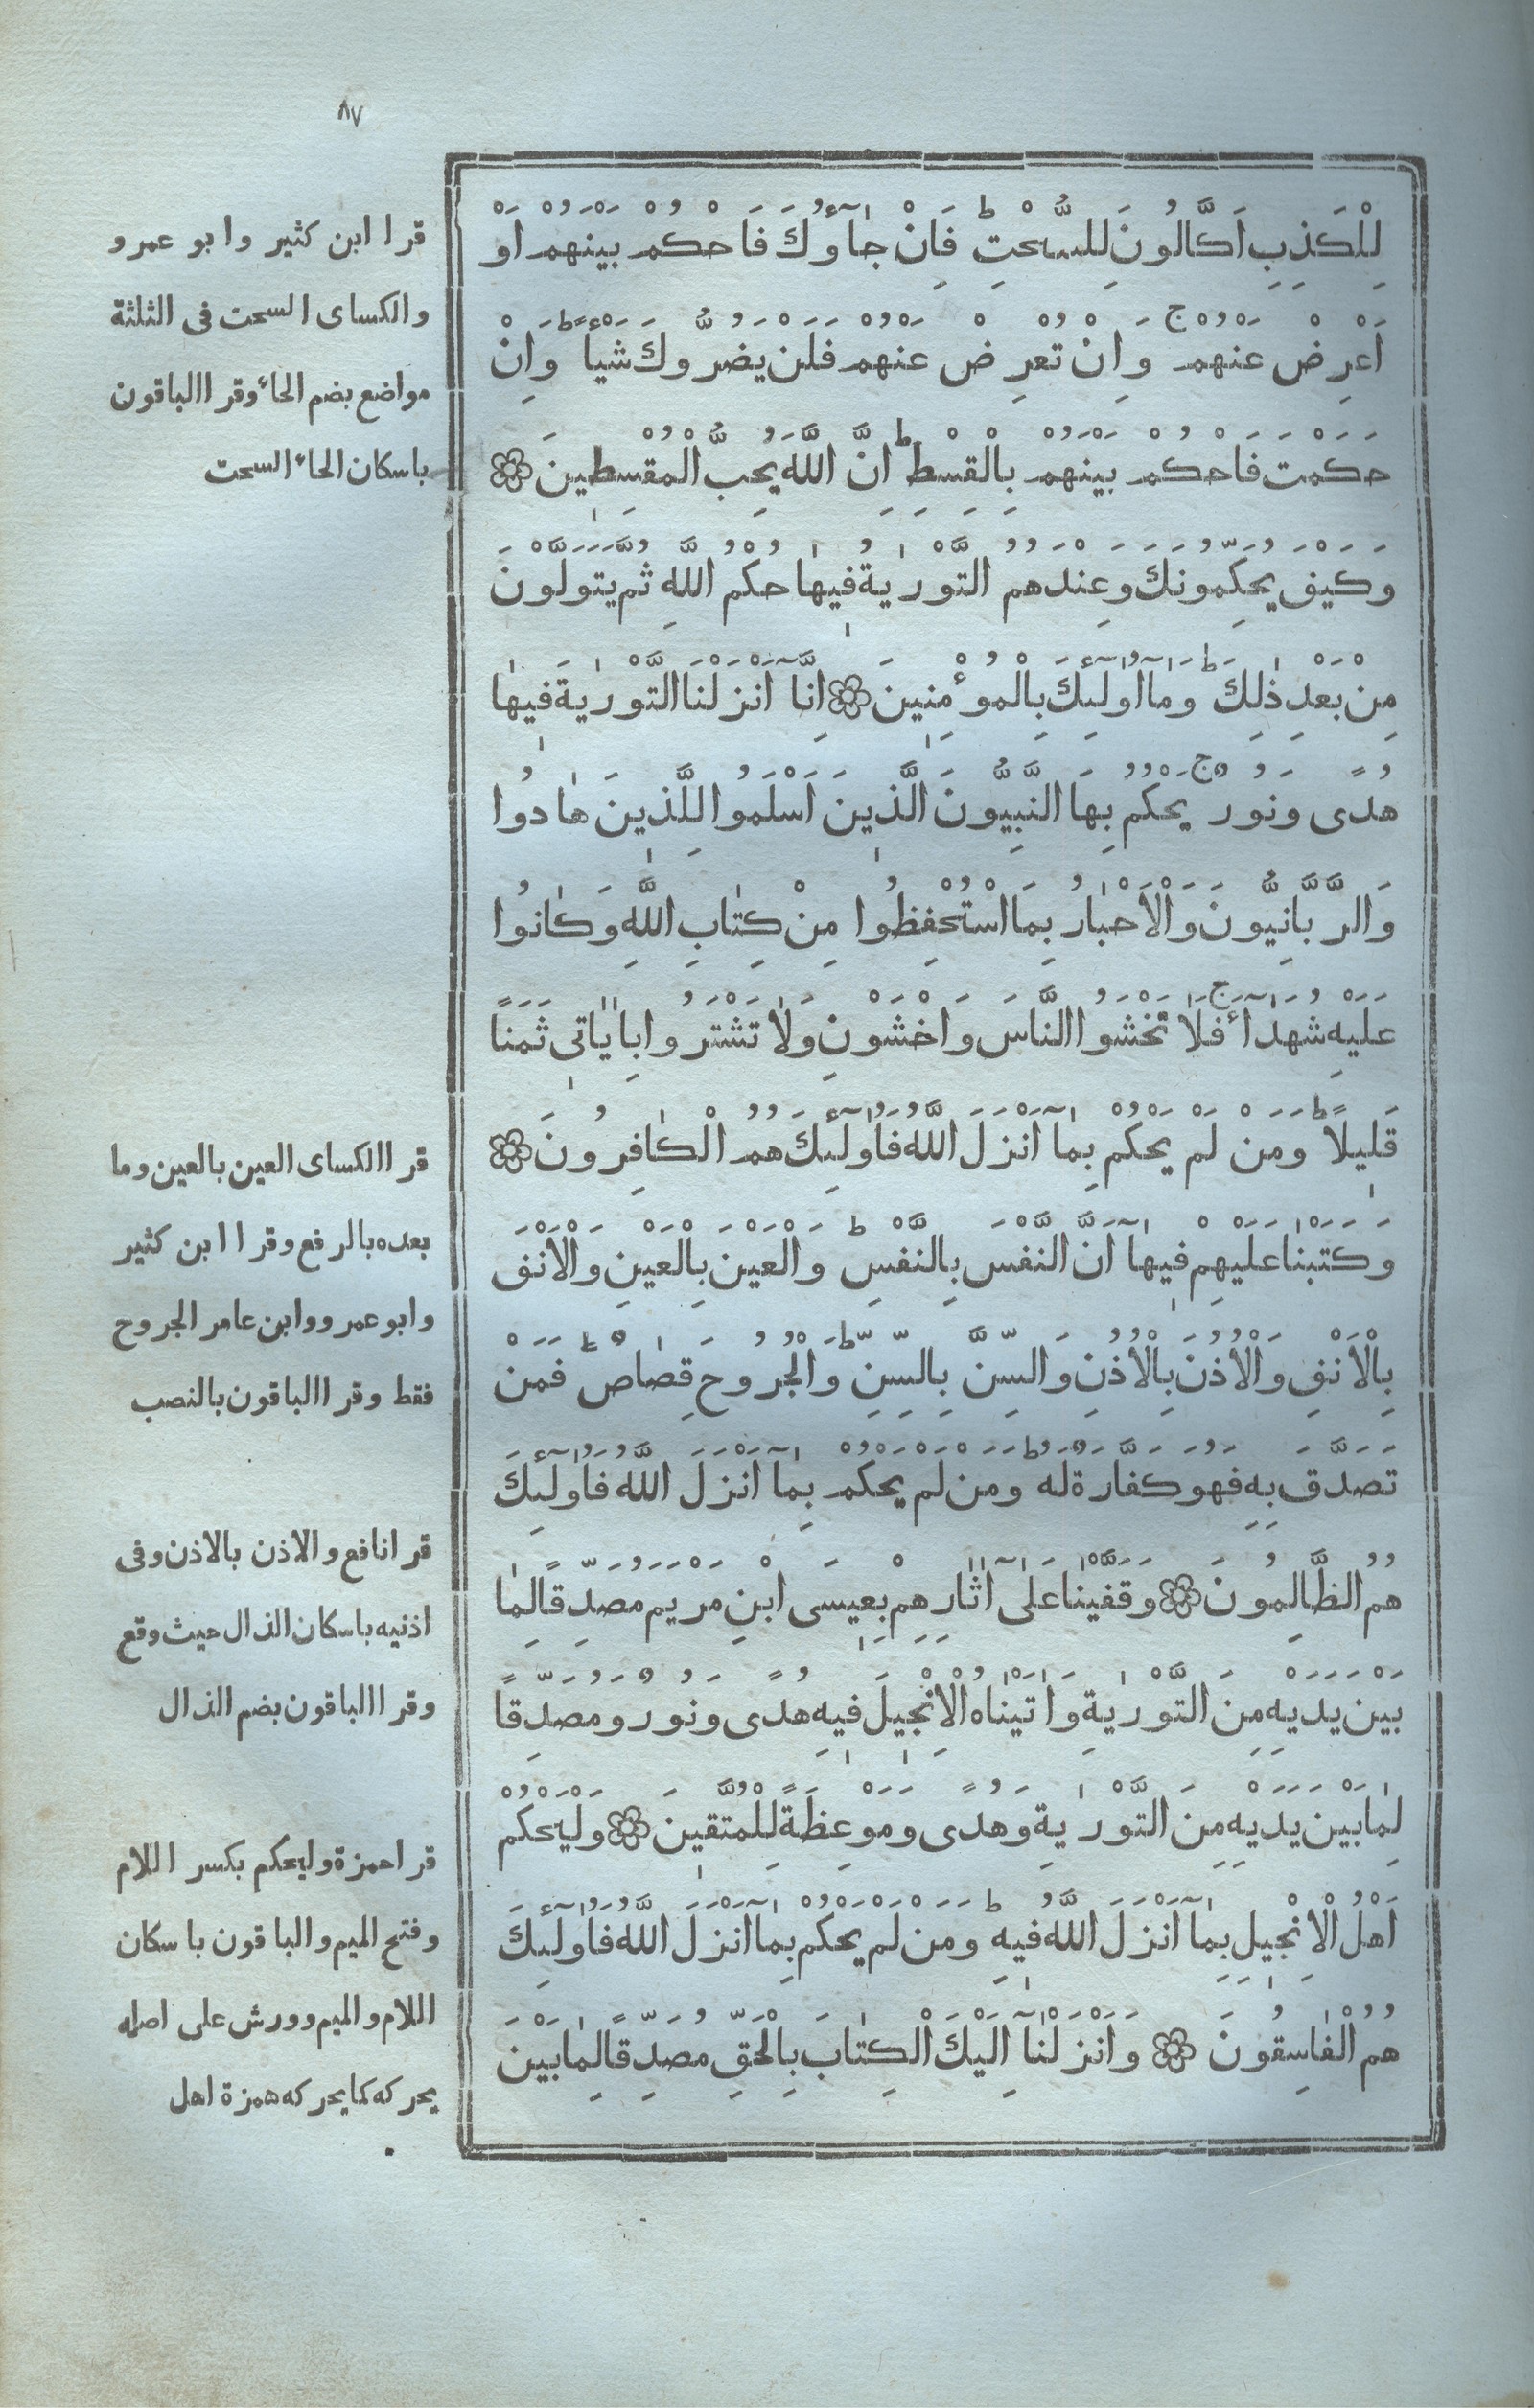 ٨٧
لِلْكَذِبِ اَكَّالُونَ لِلسُّحْتِ ط فَاِنْ جَآؤُكَ فَاحْكُمْ بَيْنَهُمْ اَوْ
اَعْرِضْ عَنْهُمْ ج وَاِنْ تُعْرِضْ عَنْهُمْ فَلَنْ يَضُرُّوكَ شَيْأً ط وَاِنْ
حَكَمْتَ فَاحْكُمْ بَيْنَهُمْ بِالْقِسْطِ ط اِنَّ اللَّهَ يُحِبُّ الْمُقْسِطِينَ
وَكَيْفَ يُحَكِّمُونَكَ وَعِنْدَهُمُ التَّوْرٰيةُ فِيهَا حُكْمُ اللَّهِ ثُمَّ يَتَوَلَّوْنَ
مِنْ بَعْدِ ذٰلِكَ ط وَمَا اُولٰٓئِكَ بِالْمُؤْمِنِينَ اِنَّآ اَنْزَلْنَا التَّوْرٰيةَ فِيهَا
هُدًى وَنُورٌ ج يَحْكُمُ بِهَا النَّبِيُّونَ الَّذِينَ اَسْلَمُوا لِلَّذِينَ هَادُوا
وَالرَّبَّانِيُّونَ وَالْاَحْبَارُ بِمَا اسْتُحْفِظُوا مِنْ كِتَابِ اللَّهِ وَكَانُوا
عَلَيْهِ شُهَدَآءَ ج فَلَا تَخْشَوُا النَّاسَ وَاخْشَوْنِ وَلَا تَشْتَرُوا بِاٰيَاتِى ثَمَنًا
قَلِيلًا ط وَمَنْ لَمْ يَحْكُمْ بِمَآ اَنْزَلَ اللَّهُ فَاُولٰٓئِكَ هُمُ الْكَافِرُونَ
وَكَتَبْنَا عَلَيْهِمْ فِيهَآ اَنَّ النَّفْسَ بِالنَّفْسِ ط وَالْعَيْنَ بِالْعَيْنِ وَالْاَنْفَ
بِالْاَنْفِ وَالْاُذُنَ بِالْاُذُنِ وَالسِّنَّ بِالسِّنِّ ط وَالْجُرُوحَ قِصَاصٌ ط فَمَنْ
تَصَدَّقَ بِهِ فَهُوَ كَفَّارَةٌ لَهُ ط وَمَنْ لَمْ يَحْكُمْ بِمَآ اَنْزَلَ اللَّهُ فَاُولٰٓئِكَ
هُمُ الظَّالِمُونَ وَقَفَّيْنَا عَلٰٓى اٰثَارِهِمْ بِعِيسَى ابْنِ مَرْيَمَ مُصَدِّقًا لِمَا
بَيْنَ يَدَيْهِ مِنَ التَّوْرٰيةِ وَاٰتَيْنَاهُ الْاِنْجِيلَ فِيهِ هُدًى وَنُورٌ وَمُصَدِّقًا
لِمَا بَيْنَ يَدَيْهِ مِنَ التَّوْرٰيةِ وَهُدًى وَمَوْعِظَةً لِلْمُتَّقِينَ وَلْيَحْكُمْ
اَهْلُ الْاِنْجِيلِ بِمَآ اَنْزَلَ اللَّهُ فِيهِ ط وَمَنْ لَمْ يَحْكُمْ بِمَآ اَنْزَلَ اللَّهُ فَاُولٰٓئِكَ
هُمُ الْفَاسِقُونَ وَاَنْزَلْنَآ اِلَيْكَ الْكِتَابَ بِالْحَقِّ مُصَدِّقًا لِمَا بَيْنَ
قرا ابن كثير وابو عمرو
والكساى السحت فى الثلثة
مواضع بضم الحاء وقرا الباقون
باسكان الحاء السحت
قرا الكساى العين بالعين وما
بعده بالرفع وقرا ابن كثير
وابو عمرو وابن عامر الجروح
فقط وقرا الباقون بالنصب
قرا نافع والاذن بالاذن وفى
اذنيه باسكان الذال حيث وقع
وقرا الباقون بضم الذال
قرا حمزة وليحكم بكسر اللام
وفتح الميم والباقون باسكان
اللام والميم وورش على اصله
يحركه كما يحركه همزة اهل